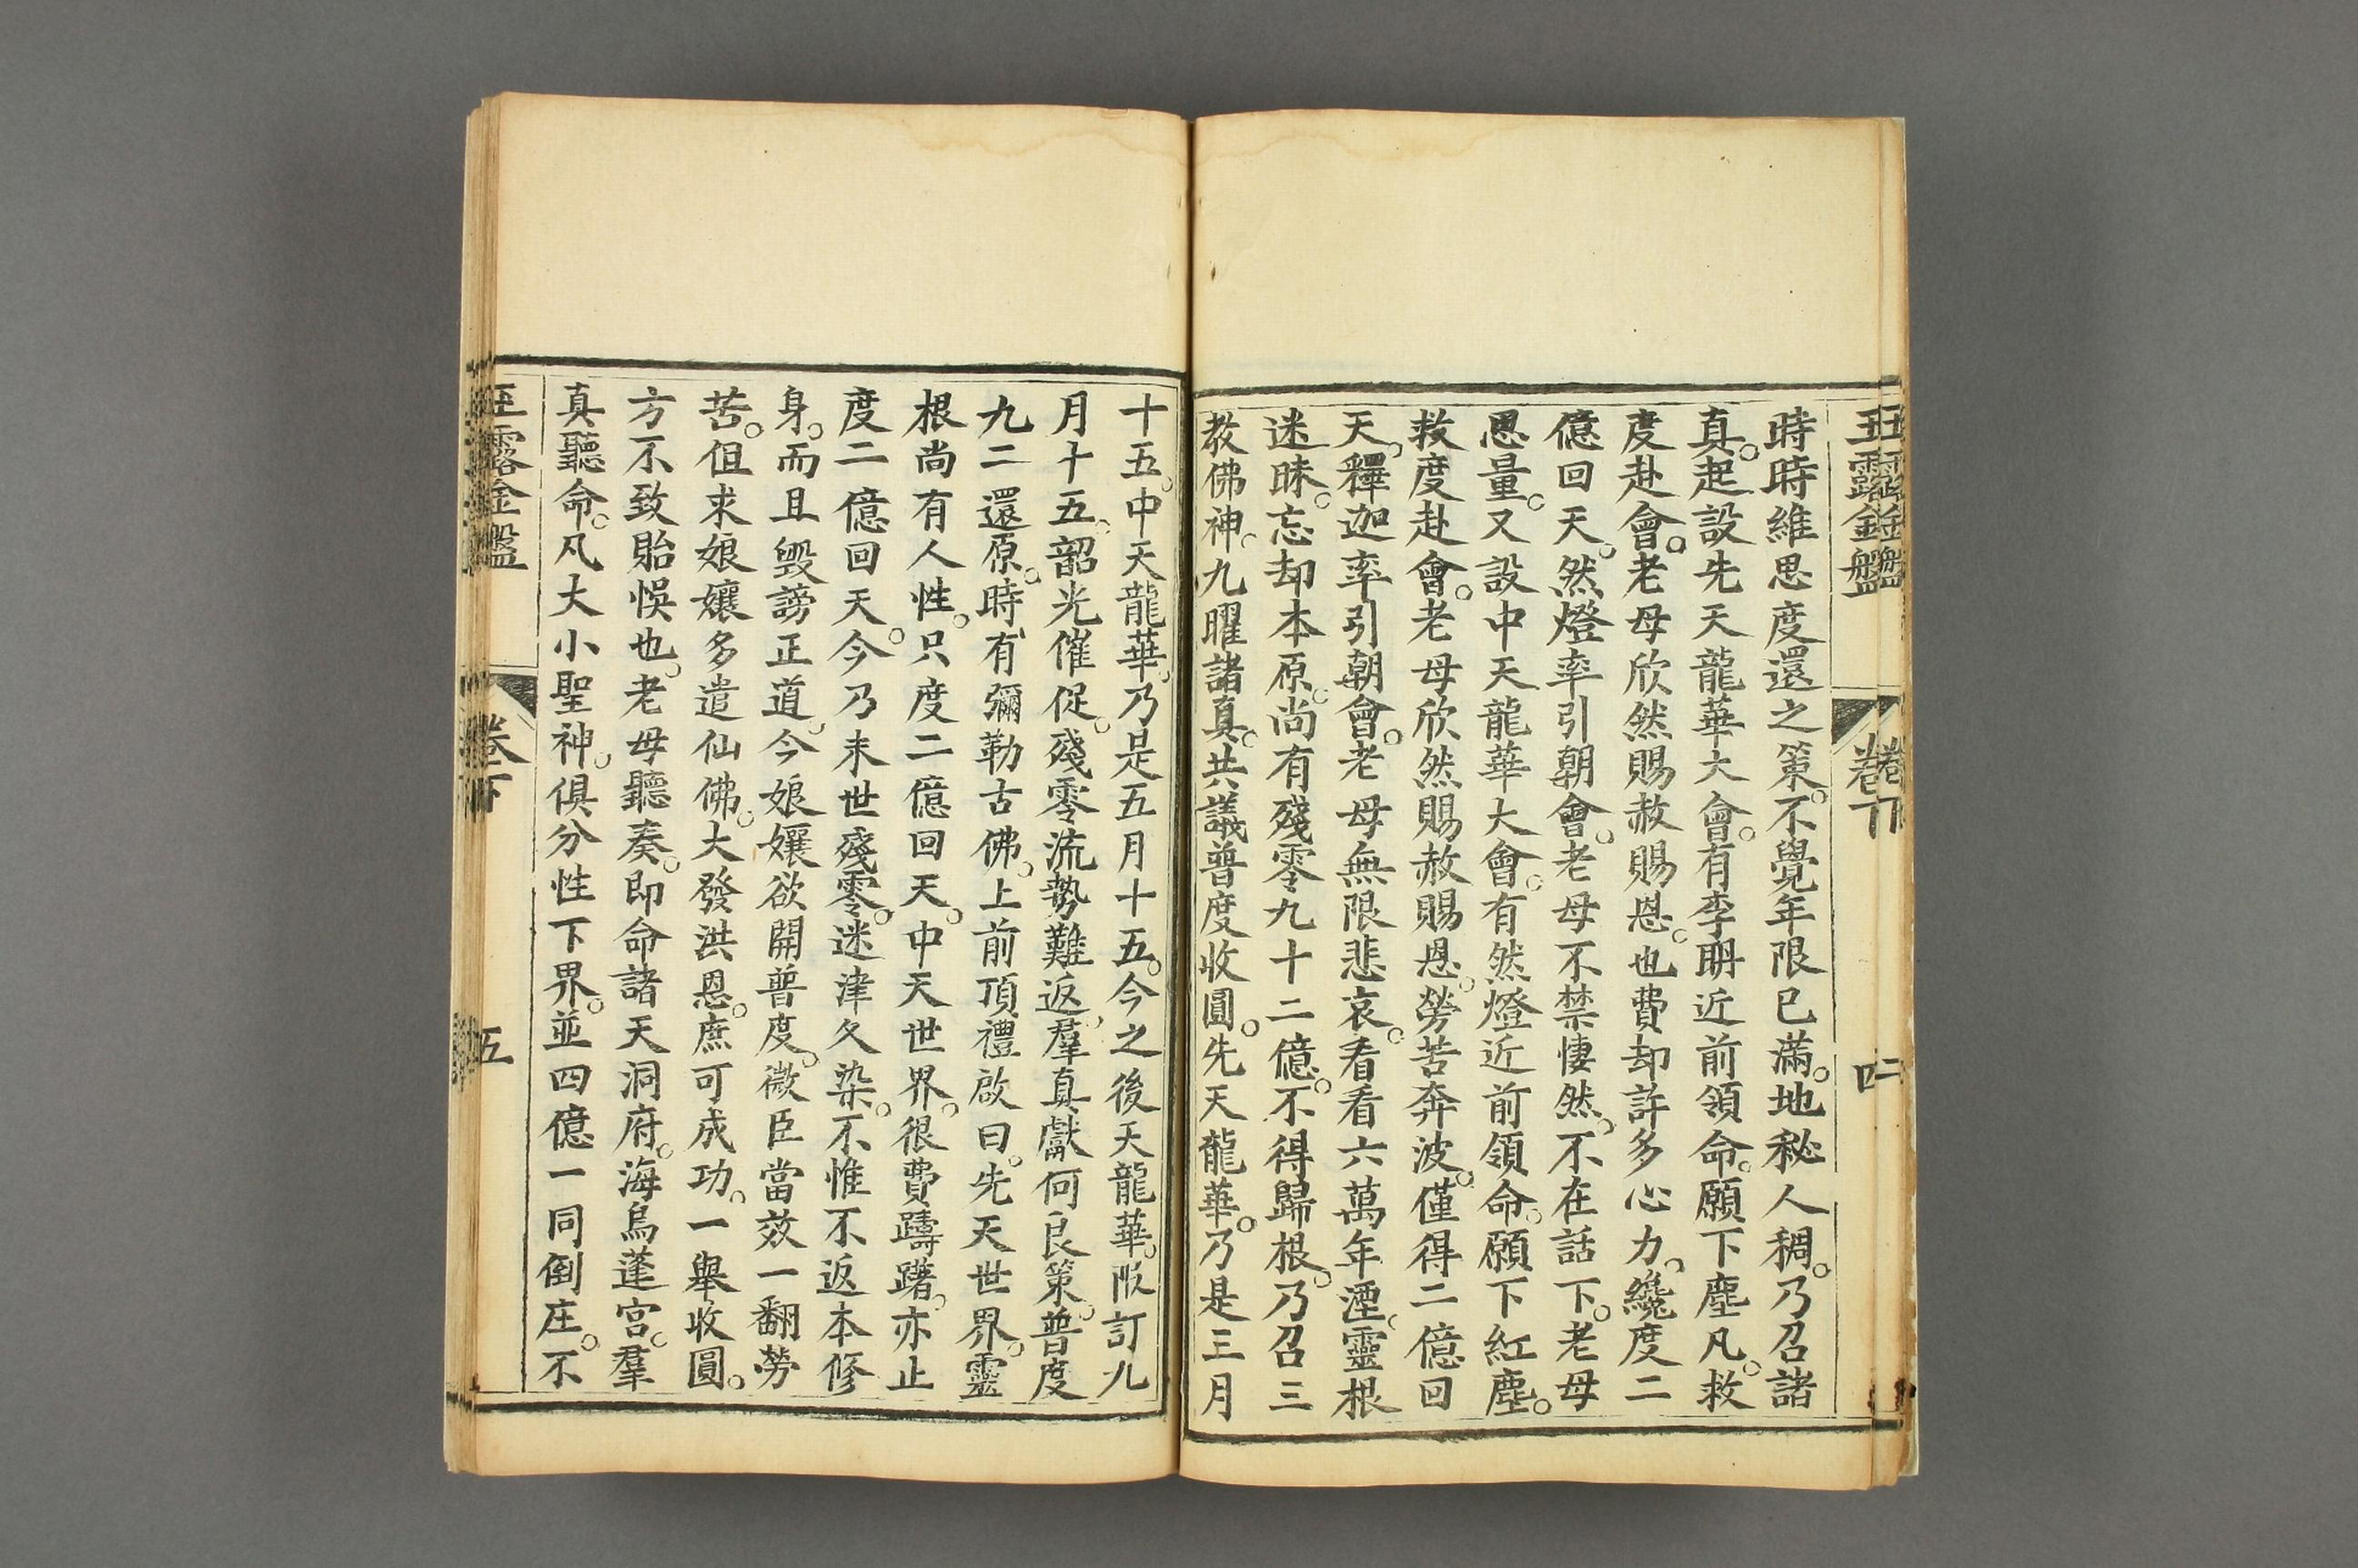 玉露金盤 卷下 四
時時維思度還之策。不覺年限已滿。地秘人稠。乃召諸
真。起設先天龍華大會。有李明近前領命。願下塵凡。救
度赴會。老母欣然賜赦賜恩。也費却許多心力。纔度二
億回天。然燈率引朝會。老母不禁悽然。不在話下。老母
恩量。又設中天龍華大會。有然燈近前領命。願下紅塵。
救度赴會。老母欣然賜赦賜恩。勞苦奔波。僅得二億回
天。釋迦率引朝會。老母無限悲哀。看看六萬年湮。靈根
迷昧。忘却本原。尚有殘零九十二億。不得歸根。乃召三
教佛神。九曜諸真。共議普度收圓。先天龍華。乃是三月
十五。中天龍華。乃是五月十五。今之後天龍華。限訂九
月十五。韶光催促。殘零流勢難返。羣真獻何良策。普度
九二還原。時有彌勒古佛。上前頂禮啟曰。先天世界。靈
根尚有人性。只度二億回天。中天世界。很費躊躇。亦止
度二億回天。今乃末世殘零。迷津久染。不惟不返本修
身。而且毀謗正道。今娘孃欲開普度。微臣當效一翻勞
苦。但求娘孃多遣仙佛。大發洪恩。庶可成功。一舉收圓。
方不致貽悞也。老母聽奏。即命諸天洞府。海島蓬宮。羣
真聽命。凡大小聖神。俱分性下界。並四億一同倒庄。不
玉露金盤 卷下 五